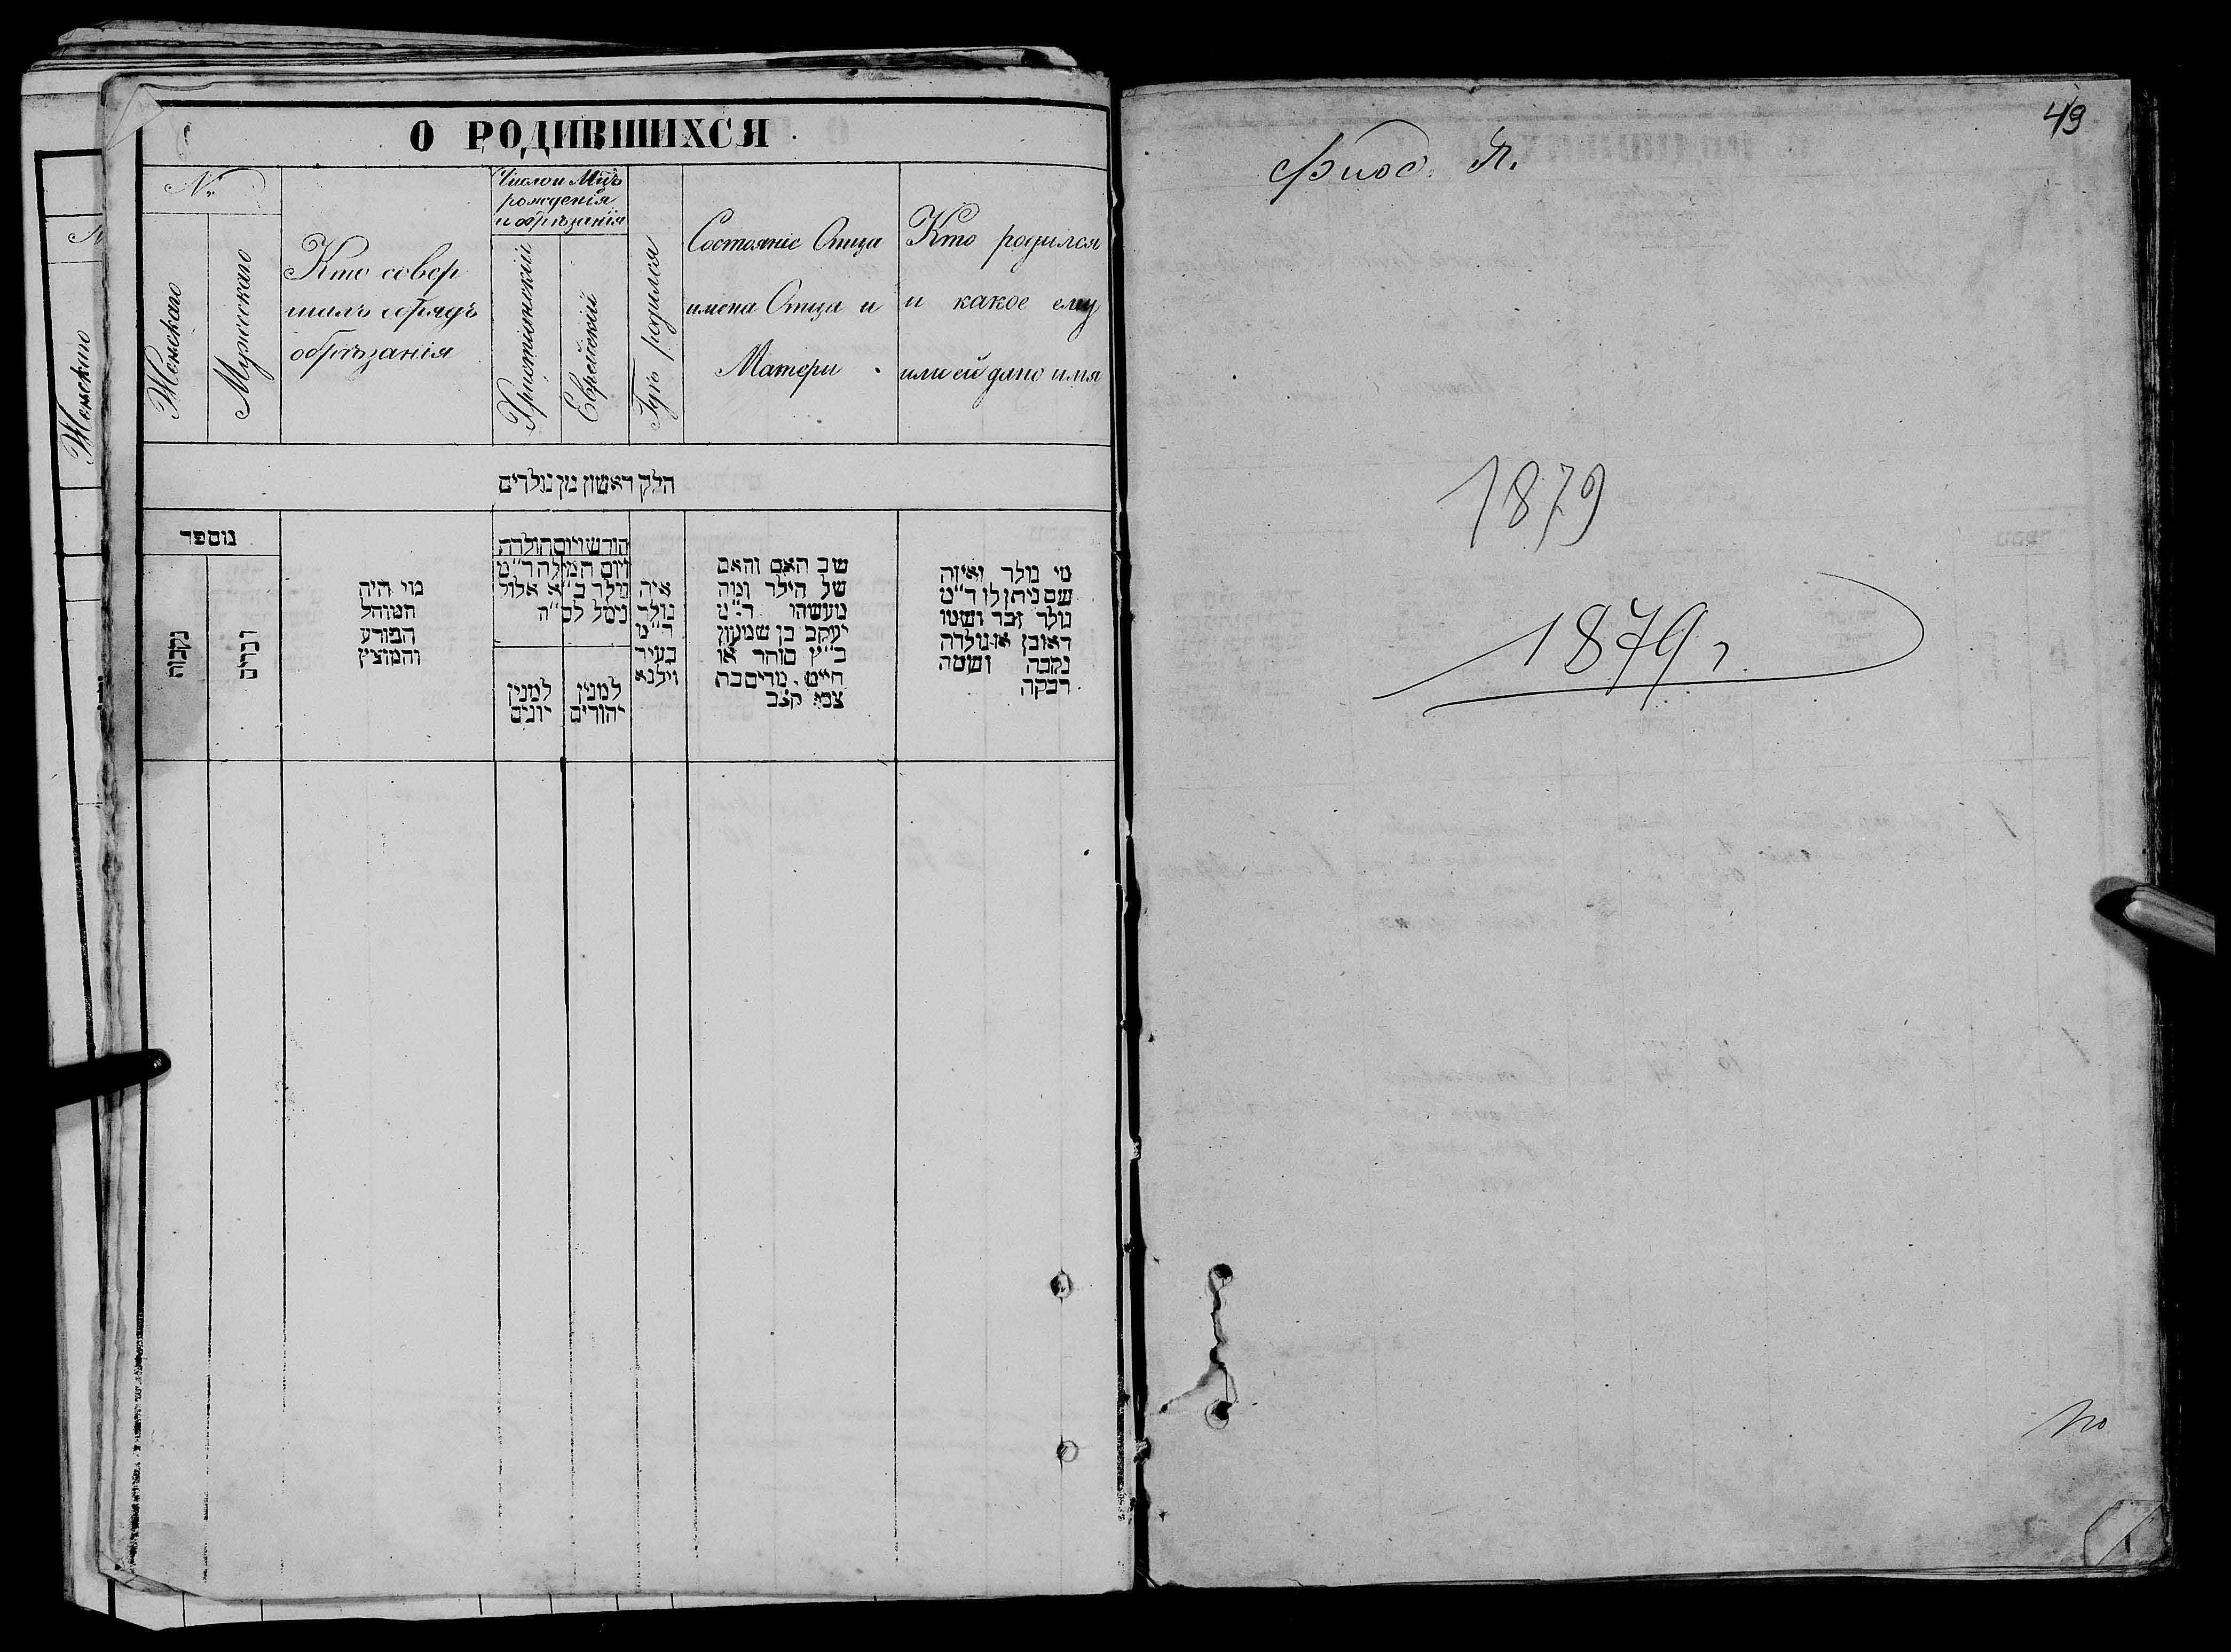 О РОДИВШИХСЯ
№
Женскаго
Мужескаго
Кто совер
шалъ обрядъ
обрѣзанія
Число и Мцъ
рожденія
и обрѣзанія
Христіанскій
Еврейскій
Гдѣ родился
Состояніе Отца
имена Отца и
Матери
Кто родился
и какое ему
или ей дано имя
Женскаго
חלק ראשון מן נולדים
מספר
נקבות
זכרים
מי היה
המוהל
הפורע
והמוצץ
חודש ויום הולדת
ויום המילה ד״מ
נולד ב״א אלול
נימל לס״ה
למנין
יונים
למנין
יהודים
איה
נולד
ד״מ
בעיר
וילנא
שב האם והאם
של הילד ומה
מעשהו ד״מ
יעקב בן שמעון
כ״ץ סוחר או
חייט. מרים בת
צבי קצב
מי נולד ואיזה
שם ניתן לו ד״מ
נולד זכר ושמו
ראובן או נולדה
נקבה ושמה
רבקה
49
1879
1879 г.